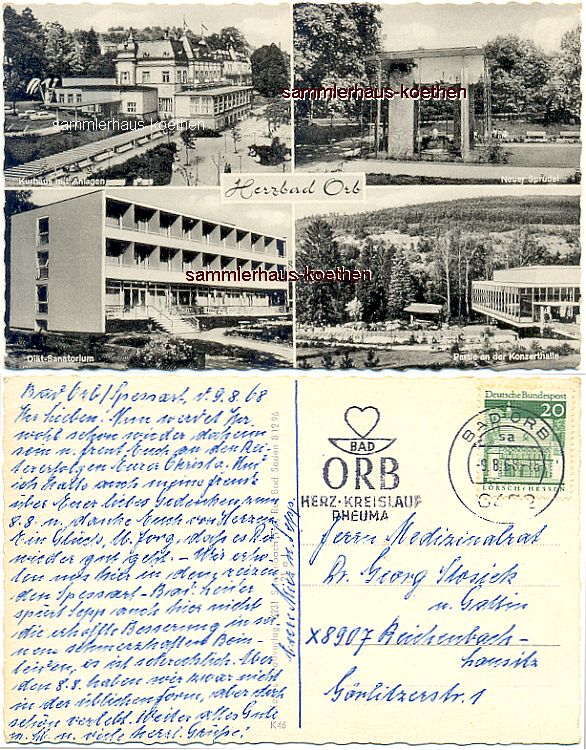 sammlerhaus-koethen
sammlerhaus-koethen
Kurhaus mit Anlagen
Neuer Sprudel
Herzbad Orb
sammlerhaus-koethen
Diät-Sanatorium
Partie an der Konzerthalle
Bad Orb/Spessart, d. 9.8.68
Ihr Lieben! Nun werdet Ihr
wohl schon wieder daheim
sein u. freut Euch an den
erfolgen Eurer Christa.
ich hatte auch meine Freude
über Euer liebes Gedenken zum
8.8. u. danke Euch von Herzen.
Ein Glück, daß es
wieder gut geht. - Wir erho-
len uns hier in dem reizen
den Spessart-Bad, heuer
spürt Sepp auch hier nicht
die erhoffte Besserung in
nem schmerzhaften Bein-
leiden, es ist schrecklich. Aber
den 8.8. haben wir zwar nicht
in der üblichen Form, aber doch
schön verlebt. Weiter alles Gute
u. viele herzl. Grüße!
Eure u. Sepp.
Bad Soden 81296
K 46
BAD
ORB
HERZ-KREISLAUF
RHEUMA
BAD ORB
-9.8.68
Deutsche Bundespost
20
LORSCH/HESSEN
Herrn Medizinalrat
Dr. Georg Stosiek
u. Gattin
X8907 Reichenbach-
Lausitz
Görlitzerstr. 1